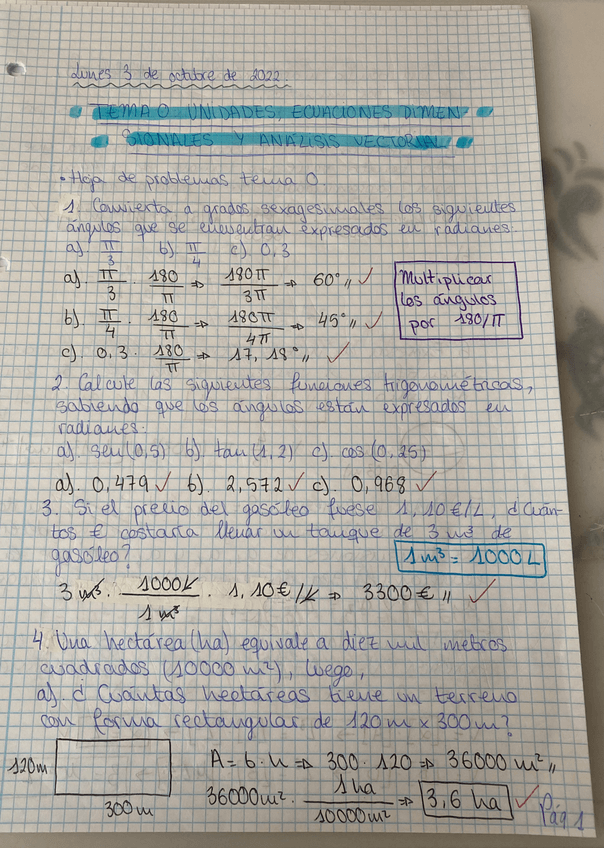 Lunes 3 de octubre de 2022.
TEMA 0. UNIDADES, ECUACIONES DIMEN
SIONALES Y ANÁLISIS VECTORIAL
• Hoja de problemas tema 0.
1. Convierta a grados sexagesimales los siguientes
ángulos que se encuentran expresados en radianes:
a) π/3 b) π/4 c). 0,3
a). π/3 · 180/π ⇒ 180π/3π ⇒ 60° ,, ✓
b). π/4 · 180/π ⇒ 180π/4π ⇒ 45° ,, ✓
c). 0,3 · 180/π ⇒ 17,18° ,, ✓
Multiplicar
los ángulos
por 180/π
2. Calcule las siguientes funciones trigonométricas,
sabiendo que los ángulos están expresados en
radianes:
a). sen(0,5) b) tan(1,2) c). cos(0,25)
a). 0,479 ✓ b). 2,572 ✓ c). 0,968 ✓
3. Si el precio del gasóleo fuese 1,10€/L, ¿Cuán-
tos € costaría llenar un tanque de 3 m³ de
gasóleo?
1 m³ = 1000 L
3 m³ · 1000 L/1 m³ · 1,10€/L ⇒ 3300 € ,, ✓
4. Una hectárea (ha) equivale a diez mil metros
cuadrados (10000 m²), luego,
a). ¿Cuántas hectáreas tiene un terreno
con forma rectangular de 120m x 300m?
120m
300m
A = b · h ⇒ 300 · 120 ⇒ 36000 m² ,,
36000m² · 1 ha/10000m² ⇒ 3,6 ha ✓
Pág 1